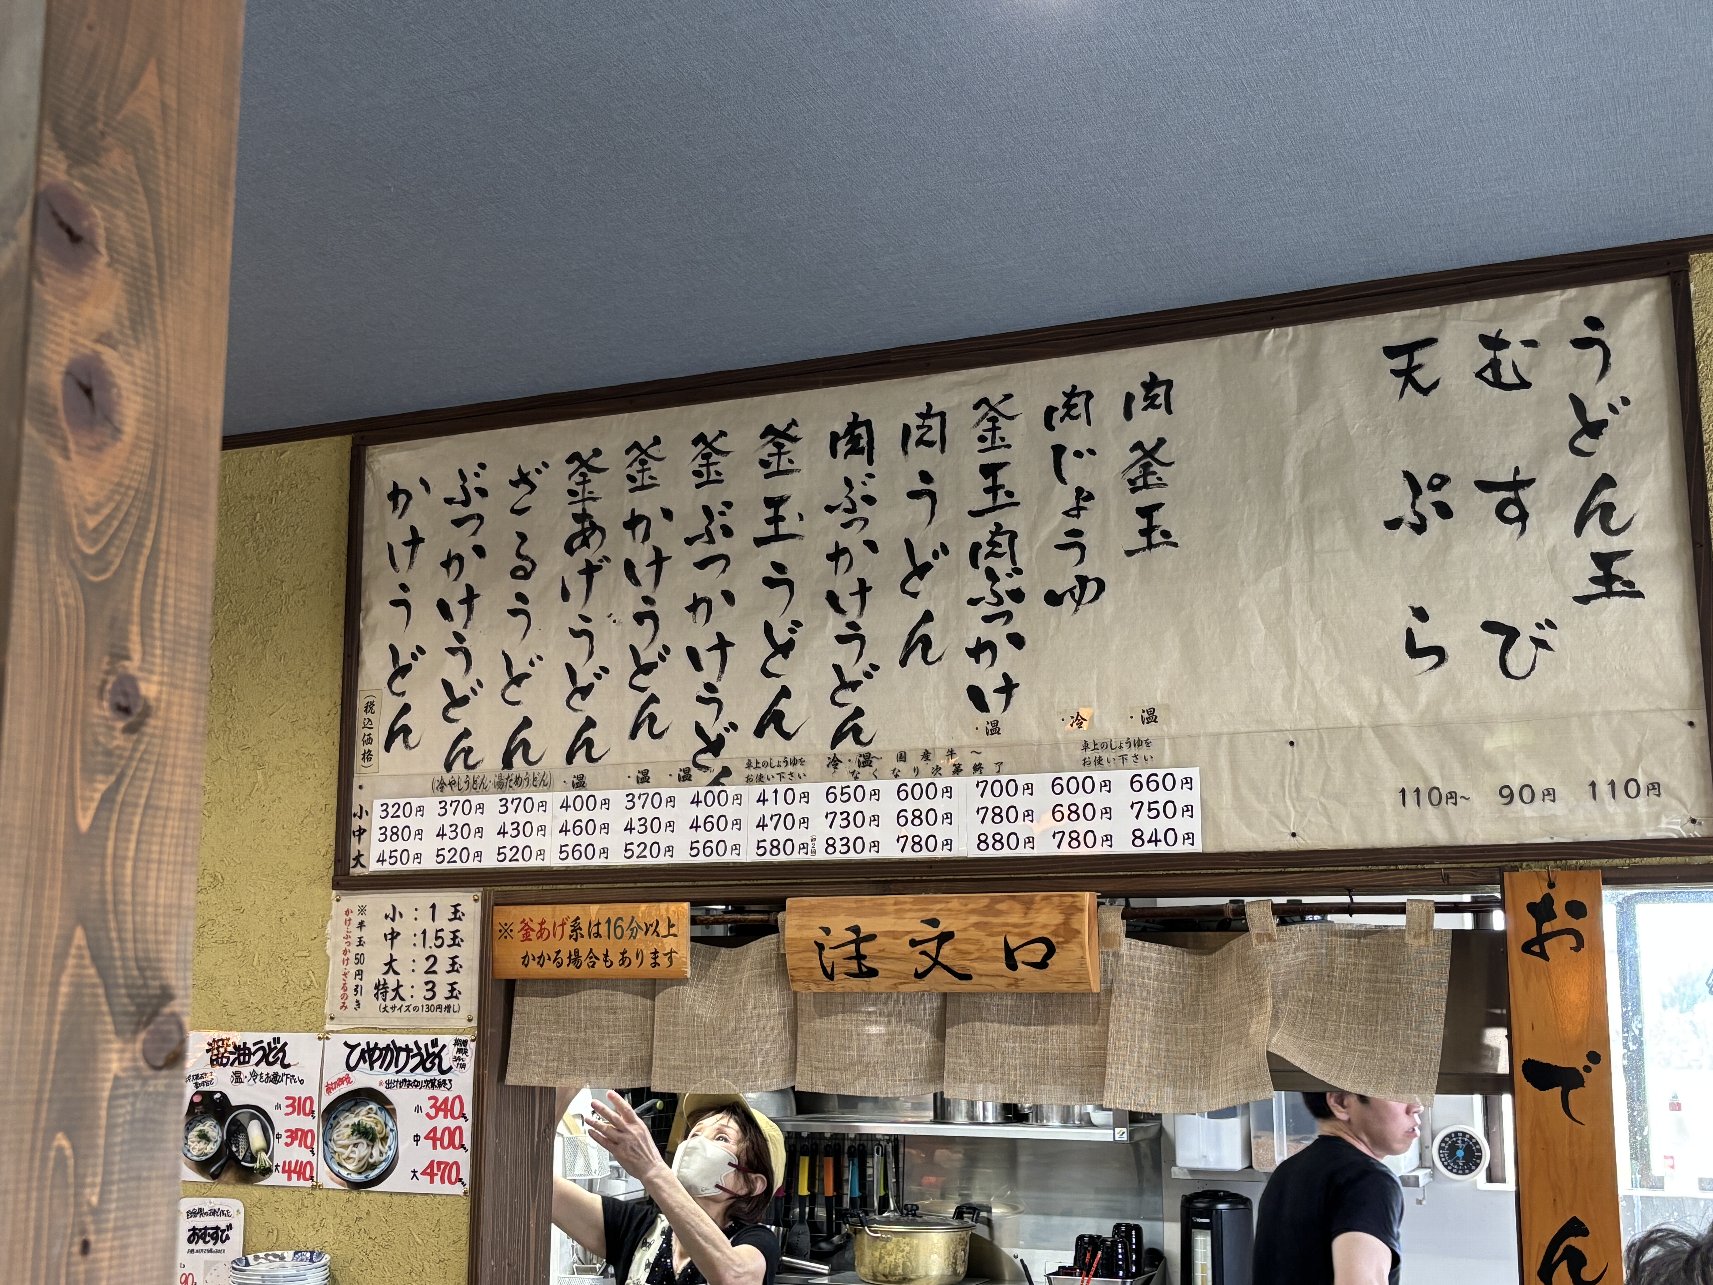 うどん玉
むすび
天ぷら
肉釜玉
肉じょうゆ
釜玉肉ぶっかけ
肉うどん
肉ぶっかけうどん
釜玉うどん
釜ぶっかけうどん
釜かけうどん
釜あげうどん
ざるうどん
ぶっかけうどん
かけうどん
(税込価格)
(冷やしうどん・湯だめうどん)
・温
・温
・温
卓上のしょうゆを
お使い下さい
冷・温
国産牛〜
なくなり次第終了
・温
・冷
卓上のしょうゆを
お使い下さい
・温
小 320円 370円 370円 400円 370円 400円 410円 650円 600円 700円 600円 660円
中 380円 430円 430円 460円 430円 460円 470円 730円 680円 780円 680円 750円
大 450円 520円 520円 560円 520円 560円 580円 830円 780円 880円 780円 840円
110円〜 90円 110円
小:1玉
中:1.5玉
大:2玉
特大:3玉
(大サイズの130円増し)
※半玉50円引き
かけ・ぶっかけ・ざるのみ
※釜あげ系は16分以上
かかる場合もあります
注文口
おでん
醤油うどん
温・冷をお選び下さい。
小 310
中 370
大 440
ひやかけうどん
小 340
中 400
大 470
おむすび
90